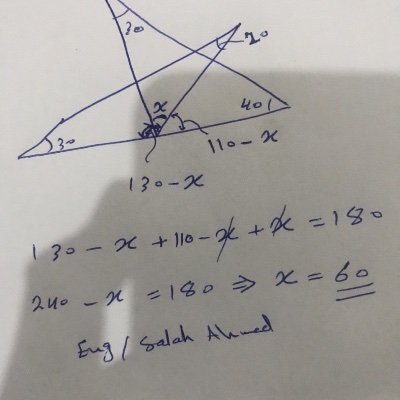 30
20
x
40
30
110 - x
130 - x
130 - x + 110 - x + x = 180
240 - x = 180 ⇒ x = 60
Eng / Salah Ahmed